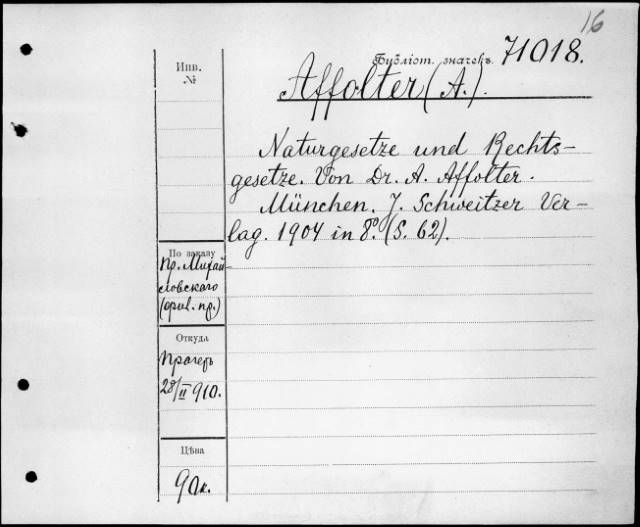 16
Библіот. значекъ 71018.
Инв.
№
Affolter (A.).
Naturgesetze und Rechts-
gesetze. Von Dr. A. Affolter.
München. J. Schweitzer Ver-
lag. 1904 in 8º. (S. 62).
По заказу
Пр. Михай-
ловскаго
Откуда
Прагеръ
28/II 910.
Цѣна
90к.